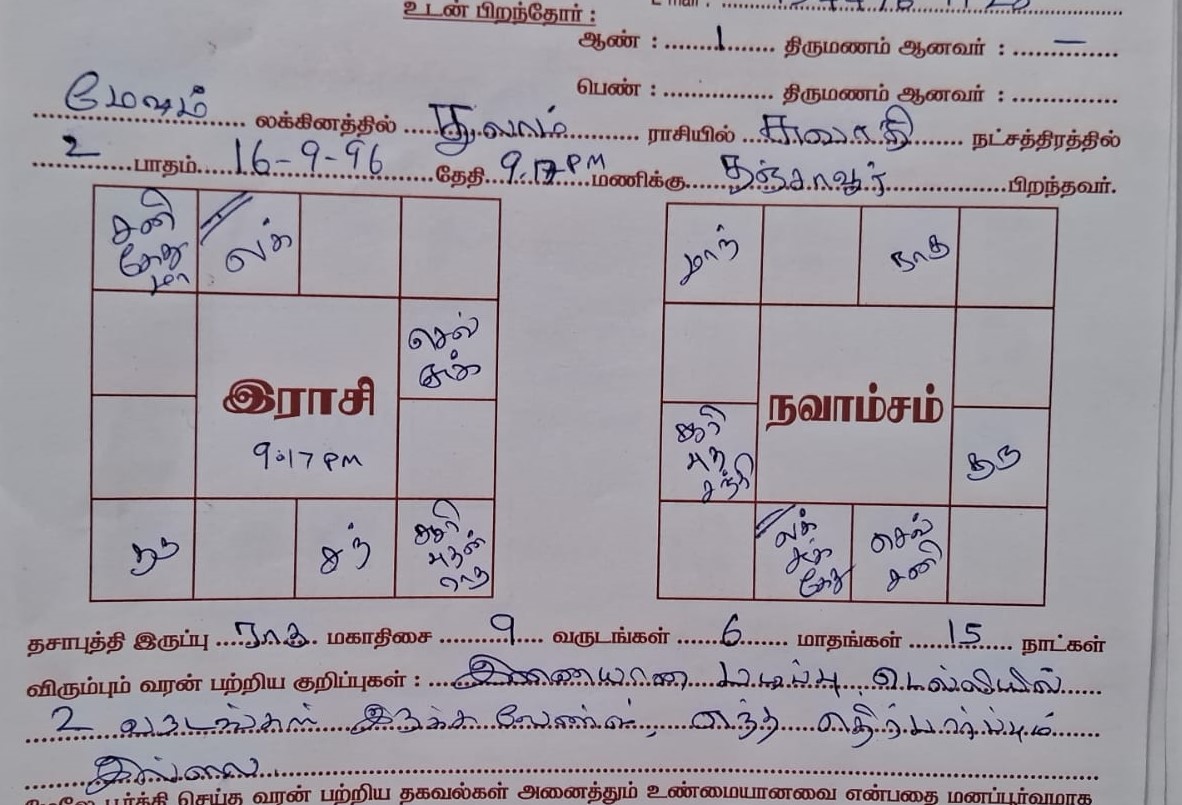 உடன் பிறந்தோர் :
ஆண் : 1 திருமணம் ஆனவர் : —
பெண் : திருமணம் ஆனவர் :
மேஷம் லக்கினத்தில் துலாம் ராசியில் சுவாதி நட்சத்திரத்தில்
2 பாதம் 16-9-96 தேதி 9.17 PM மணிக்கு தஞ்சாவூர் பிறந்தவர்.
சனி
கேது
மா
லக்
செல்
சுக்
இராசி
9:17 PM
குரு
சந்
சூரி
புதன்
ராகு
மாந்
ராகு
நவாம்சம்
சூரி
புத
சந்தி
குரு
லக்
சுக்
கேது
செல்
சனி
தசாபுத்தி இருப்பு ராகு மகாதிசை 9 வருடங்கள் 6 மாதங்கள் 15 நாட்கள்
விரும்பும் வரன் பற்றிய குறிப்புகள் : இணையான படிப்பு, டெல்லியில்
2 வருடங்கள் இருக்க வேண்டும், எந்த எதிர்பார்ப்பும்
இல்லை
மேலே பூர்த்தி செய்த வரன் பற்றிய தகவல்கள் அனைத்தும் உண்மையானவை என்பதை மனப்பூர்வமாக